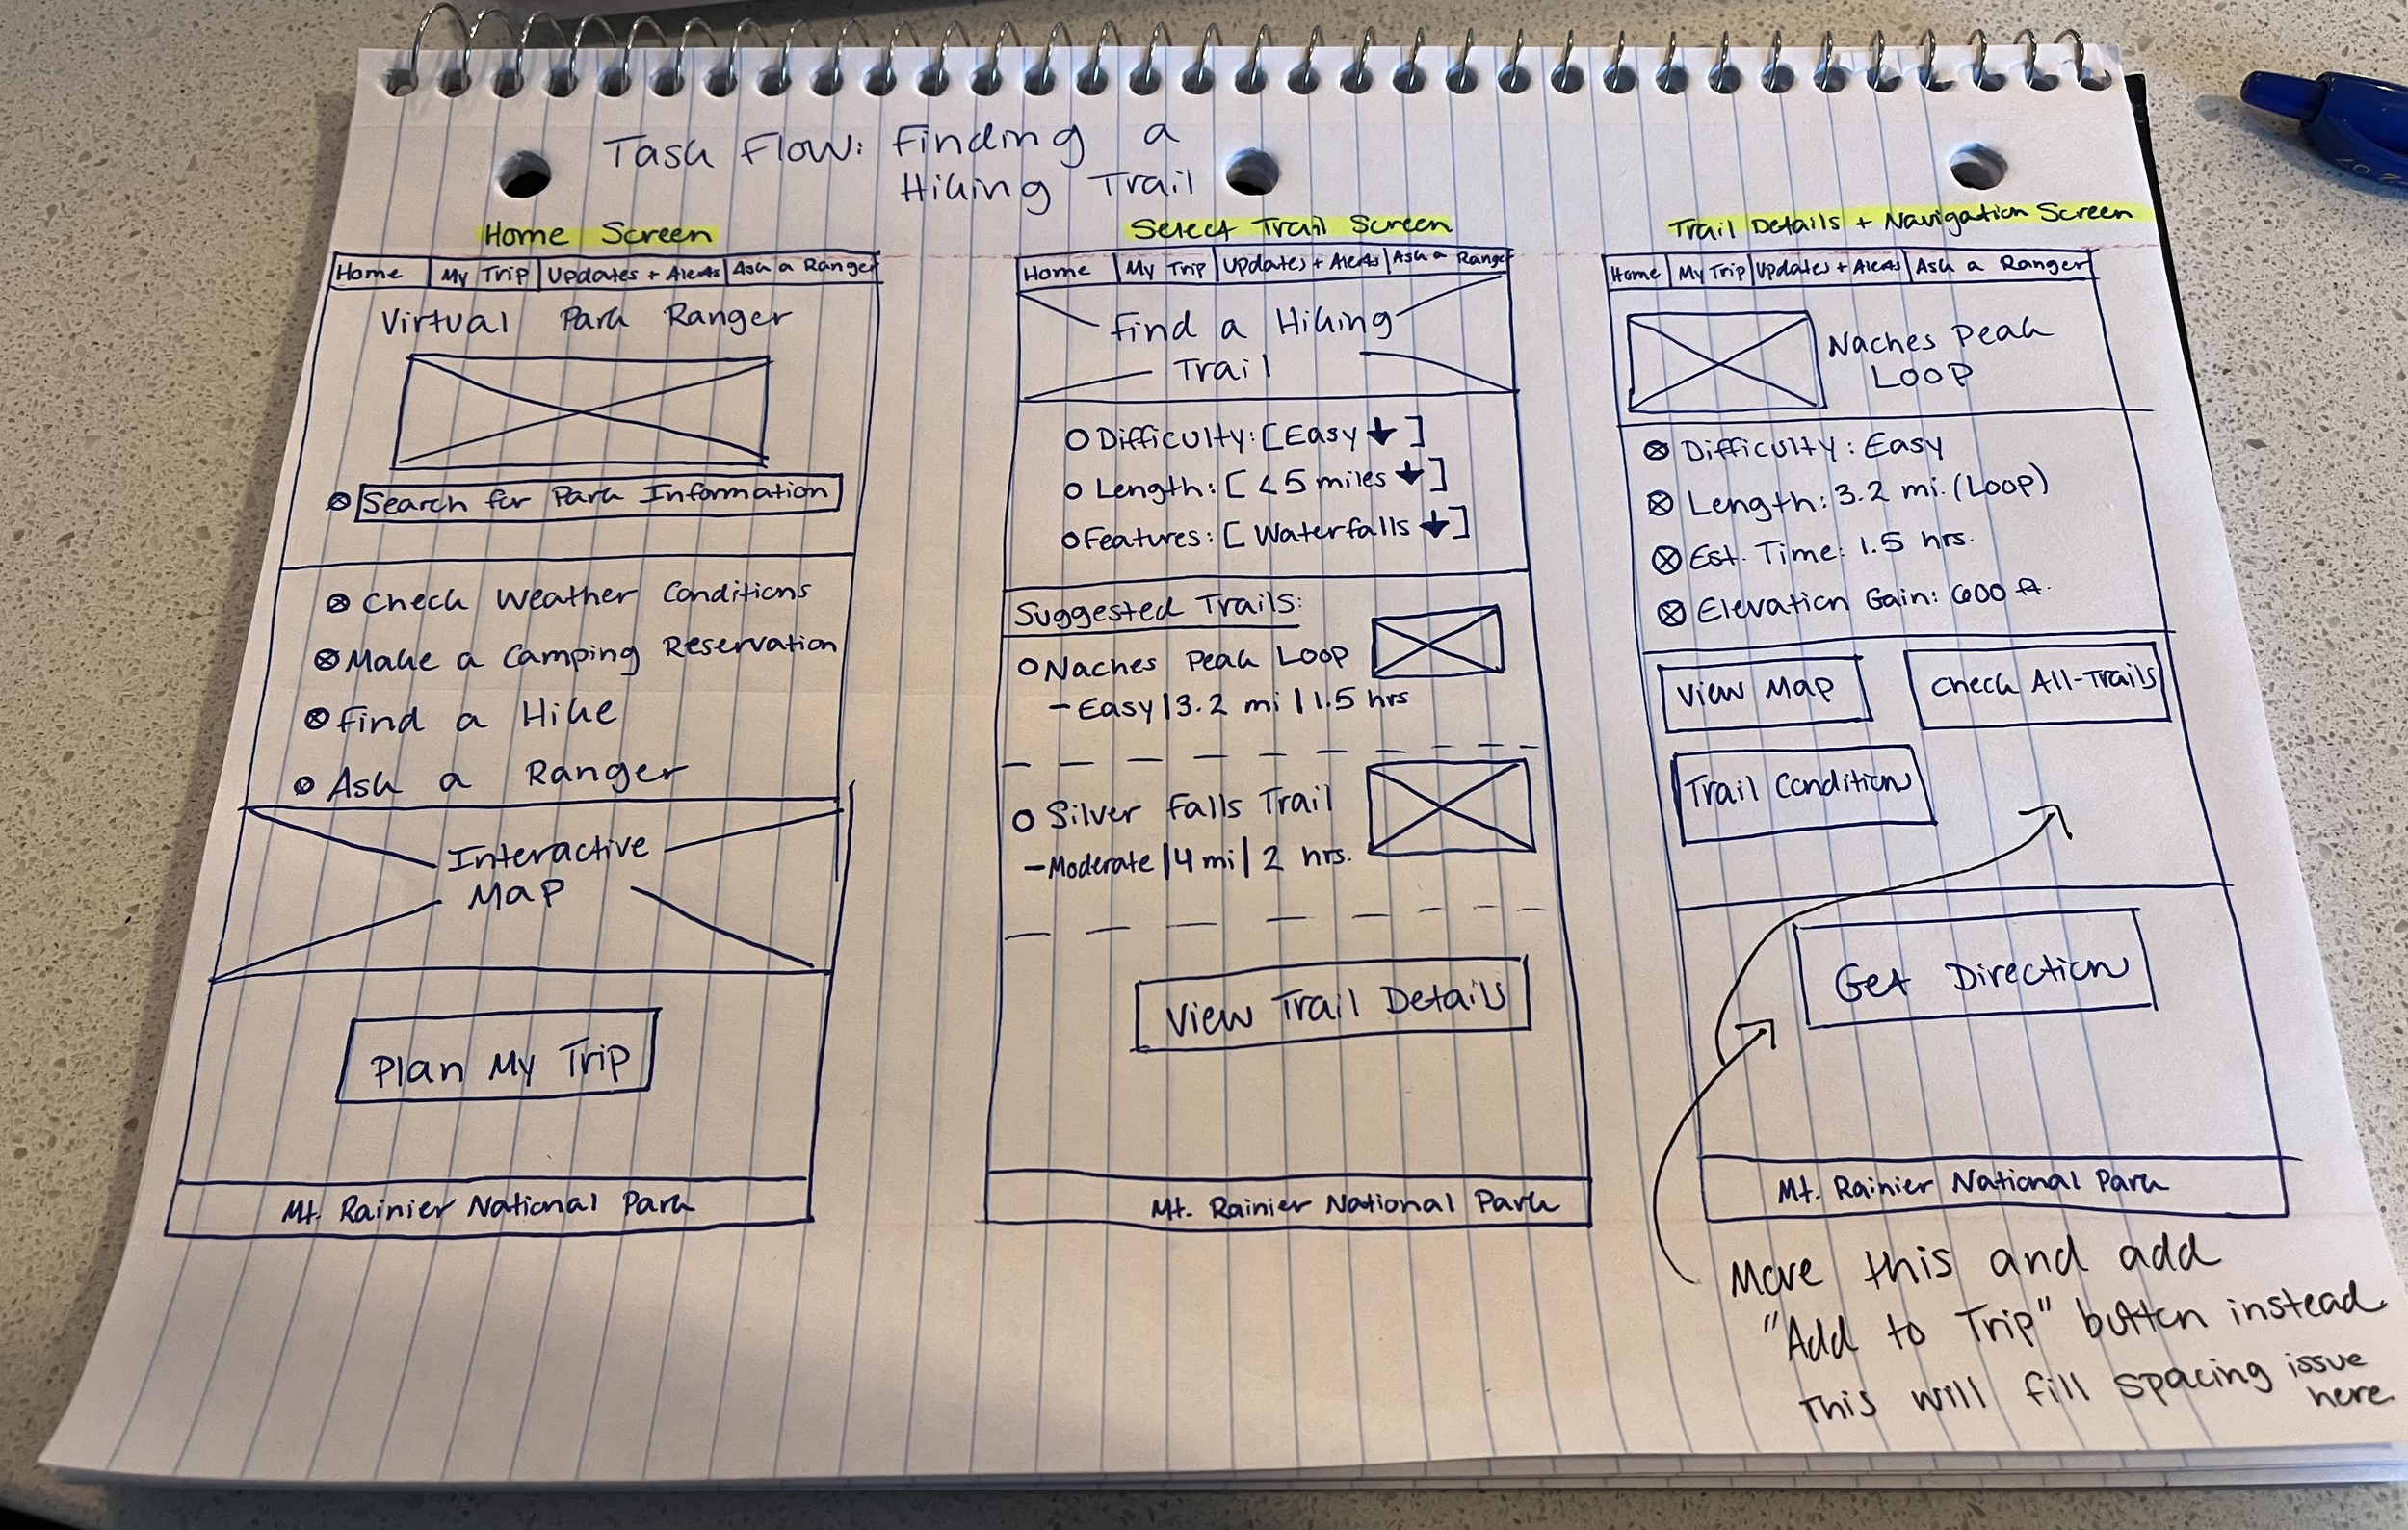 Task Flow: Finding a
Hiking Trail
Home Screen
Home | My Trip | Updates + Alerts | Ask a Ranger
Virtual Park Ranger
Search for Park Information
Check Weather Conditions
Make a Camping Reservation
Find a Hike
Ask a Ranger
Interactive
Map
Plan My Trip
Mt. Rainier National Park
Select Trail Screen
Home | My Trip | Updates + Alerts | Ask a Ranger
Find a Hiking
Trail
Difficulty: [Easy ↓]
Length: [<5 miles ↓]
Features: [Waterfalls ↓]
Suggested Trails:
Naches Peak Loop
- Easy | 3.2 mi | 1.5 hrs
Silver Falls Trail
- Moderate | 4 mi | 2 hrs.
View Trail Details
Mt. Rainier National Park
Trail Details + Navigation Screen
Home | My Trip | Updates + Alerts | Ask a Ranger
Naches Peak
Loop
Difficulty: Easy
Length: 3.2 mi. (Loop)
Est. Time: 1.5 hrs.
Elevation Gain: 600 ft.
View Map
Check All-Trails
Trail Condition
Get Direction
Mt. Rainier National Park
Move this and add
"Add to Trip" button instead
This will fill spacing issue
here.